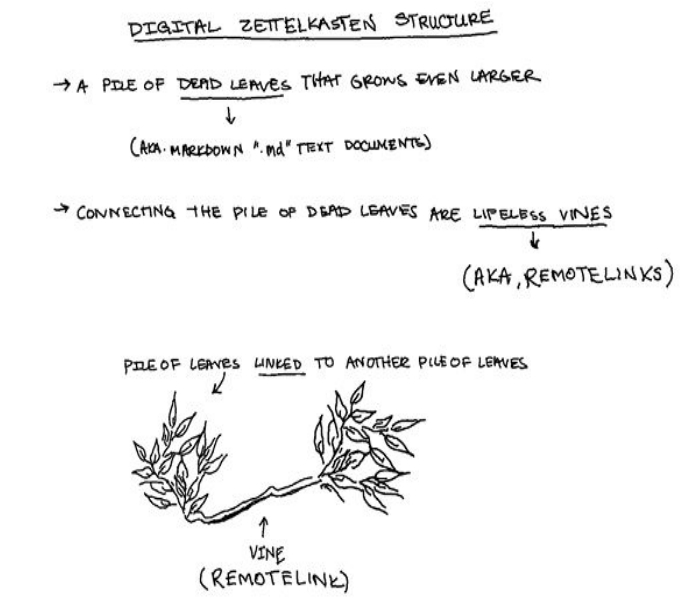 DIGITAL ZETTELKASTEN STRUCTURE
→ A PILE OF DEAD LEAVES THAT GROWS EVEN LARGER
(AKA. MARKDOWN ".md" TEXT DOCUMENTS)
→ CONNECTING THE PILE OF DEAD LEAVES ARE LIFELESS VINES
(AKA, REMOTELINKS)
PILE OF LEAVES LINKED TO ANOTHER PILE OF LEAVES
VINE
(REMOTELINK)